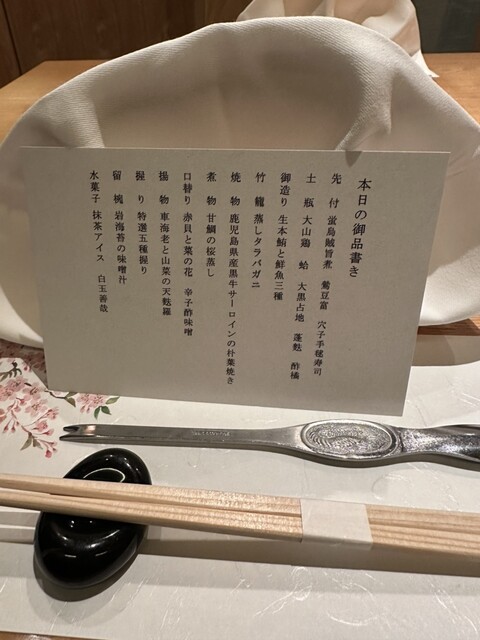 本日の御品書き
先 付 蛍烏賊旨煮 鶯豆富 穴子手毬寿司
土 瓶 大山鶏 蛤 大黒占地 蓬麩 酢橘
御造り 生本鮪と鮮魚三種
竹 籠 蒸しタラバガニ
焼 物 鹿児島県産黒牛サーロインの朴葉焼き
煮 物 甘鯛の桜蒸し
口替り 赤貝と菜の花 辛子酢味噌
揚 物 車海老と山菜の天麩羅
握 り 特選五種握り
留 椀 岩海苔の味噌汁
水菓子 抹茶アイス 白玉善哉